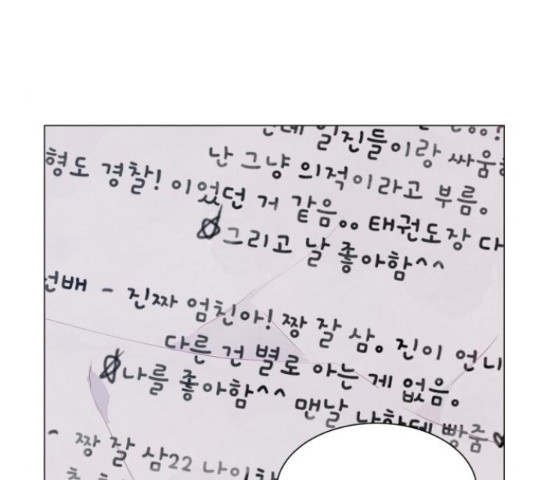 일진들이랑 싸움
난 그냥 의적이라고 부름。
형도 경찰! 이었던 거 같음。。 태권도장 다
그리고 날 좋아함^^
선배 - 진짜 엄친아! 짱 잘 삼。 진이 언니
다른 건 별로 아는 게 없음。
나를 좋아함^^ 맨날 나한테 빵줌♥
짱 잘 삼22 나이차